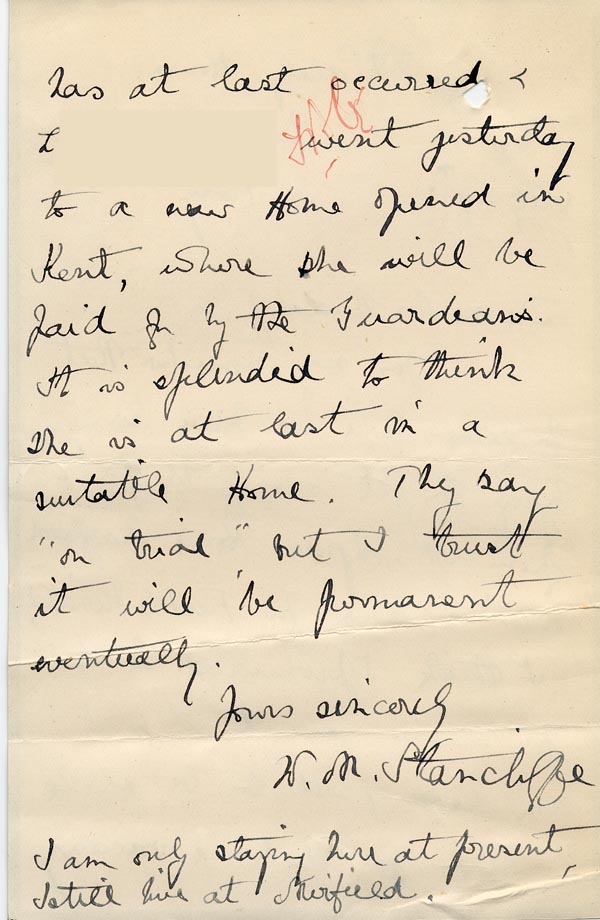 has at last occurred &
L went yesterday
to a new Home opened in
Kent, where she will be
paid for by the Guardians.
It is splendid to think
she is at last in a
suitable Home. They say
"on trial" but I trust
it will be permanent
eventually.
Yours sincerely
W. M. Stancliffe
I am only staying here at present,
I still live at Mirfield.